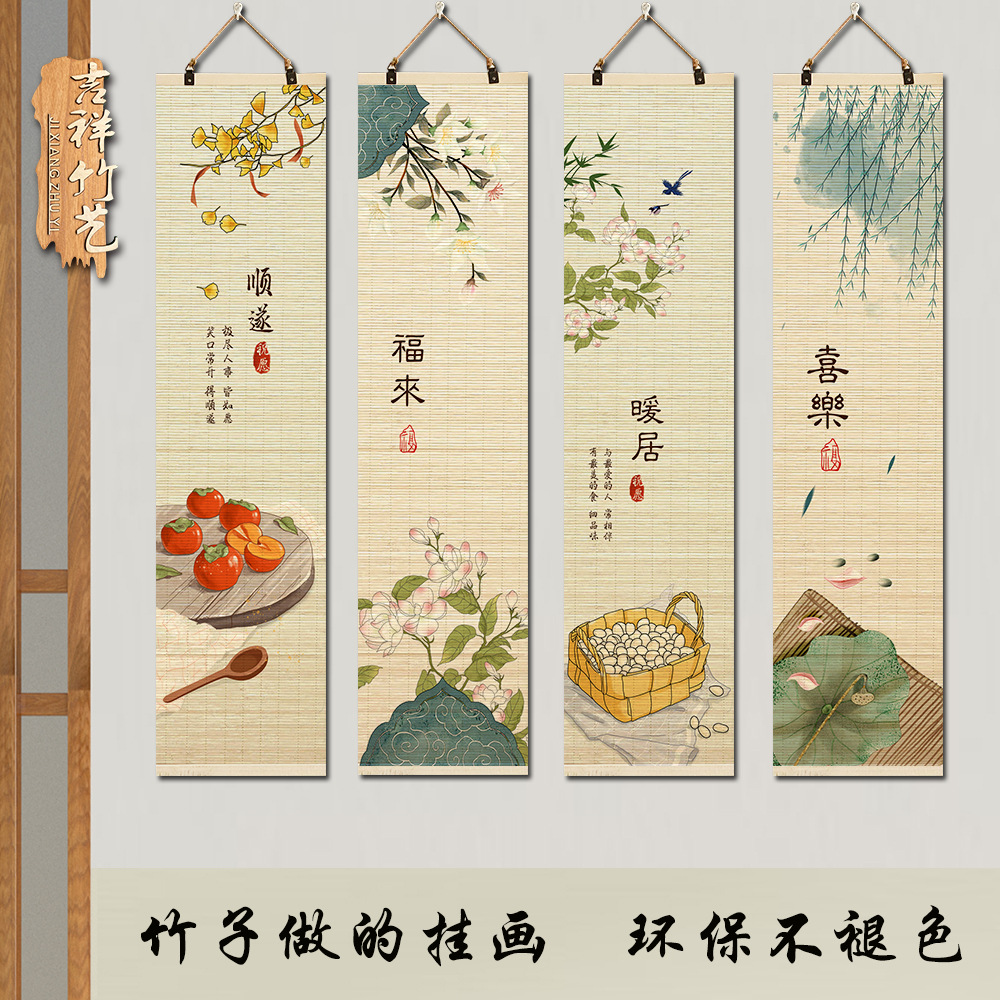 吉祥竹艺
JI XIANG ZHU YI
顺遂
祝愿
极尽人事 皆如愿
笑口常开 得顺遂
福來
福
暖居
祝愿
与最爱的人 常相伴
有最美的食 细品味
喜樂
福
竹子做的挂画 环保不褪色